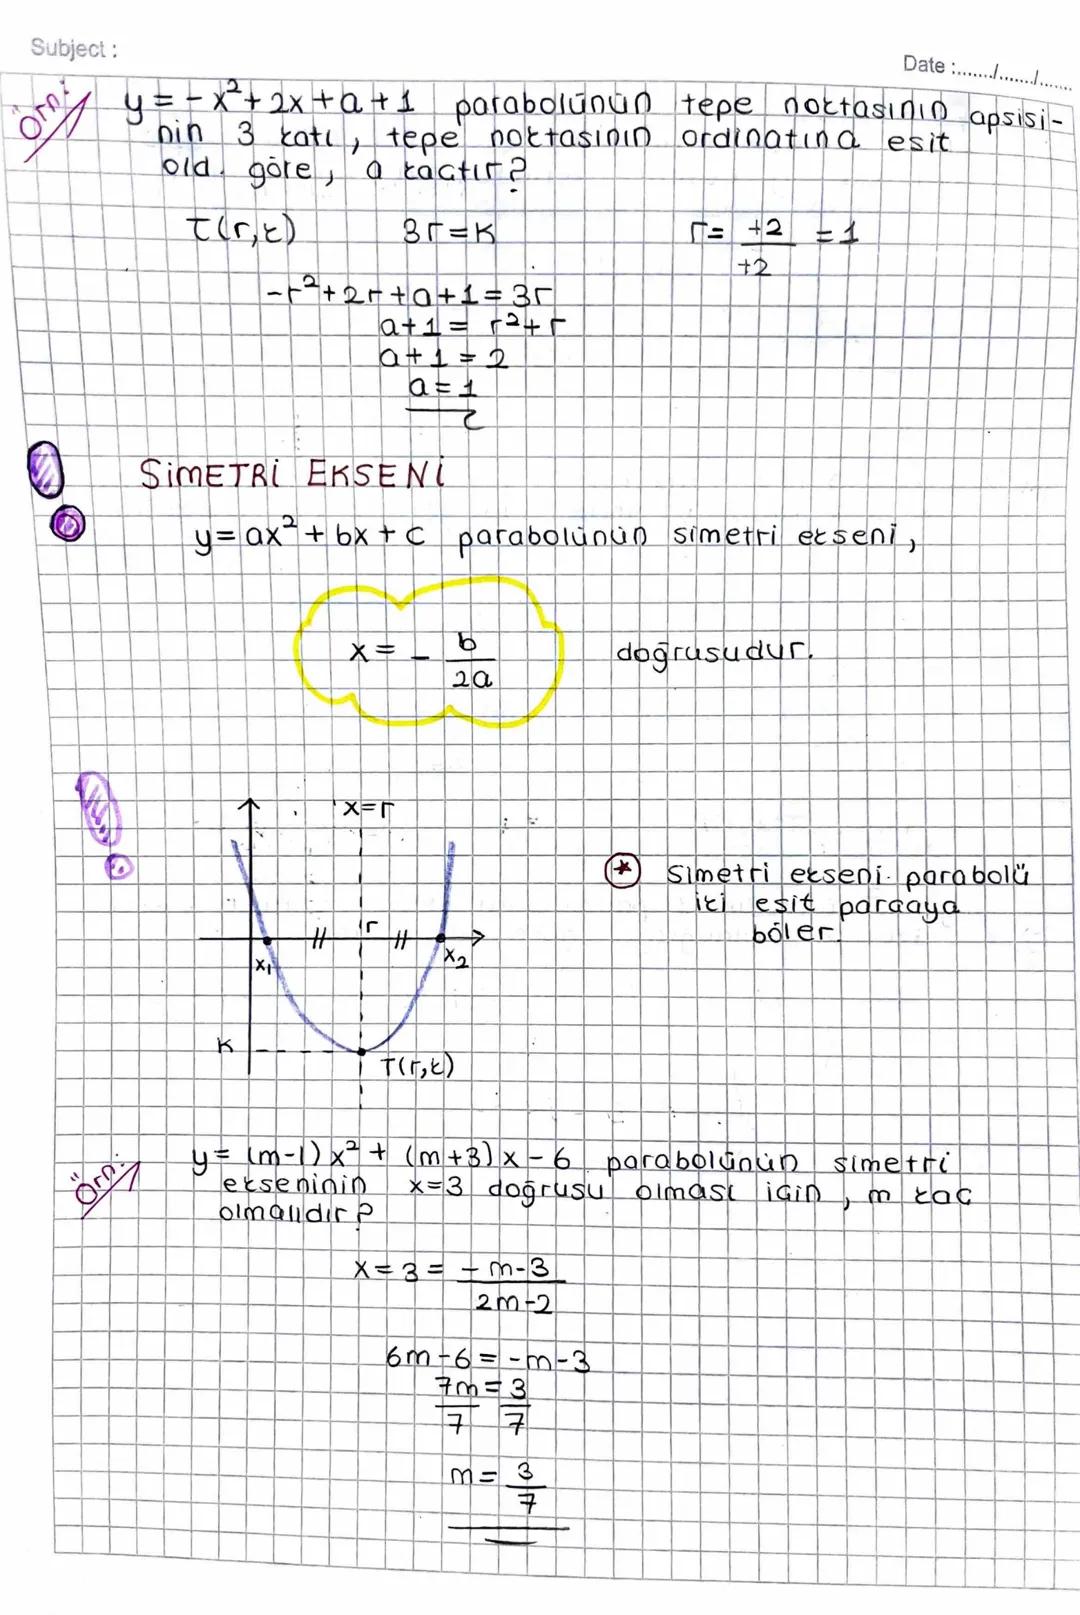 Subject :
Date :......../......./.......
Örn: y = -x² + 2x + a + 1 parabolünün tepe noktasının apsisi-
nin 3 katı, tepe noktasının ordinatına eşit
old. göre, a kaçtır?
T(r,k) 3r=k r= +2/+2 = 1
-r²+2r+a+1=3r
a+1= r²+r
a+1=2
a=1
SİMETRİ EKSENİ
y= ax² + bx + c parabolünün simetri ekseni,
x= - b/2a doğrusudur.
x=r
Simetri ekseni parabolü
iki eşit parçaya
böler.
r
x₁ x₂
K
T(r,k)
Örn: y= (m-1)x² + (m+3)x - 6 parabolünün simetri
ekseninin x=3 doğrusu olması için, m kaç
olmalıdır?
x=3= -m-3/2m-2
6m-6=-m-3
7m/7 = 3/7
m= 3/7